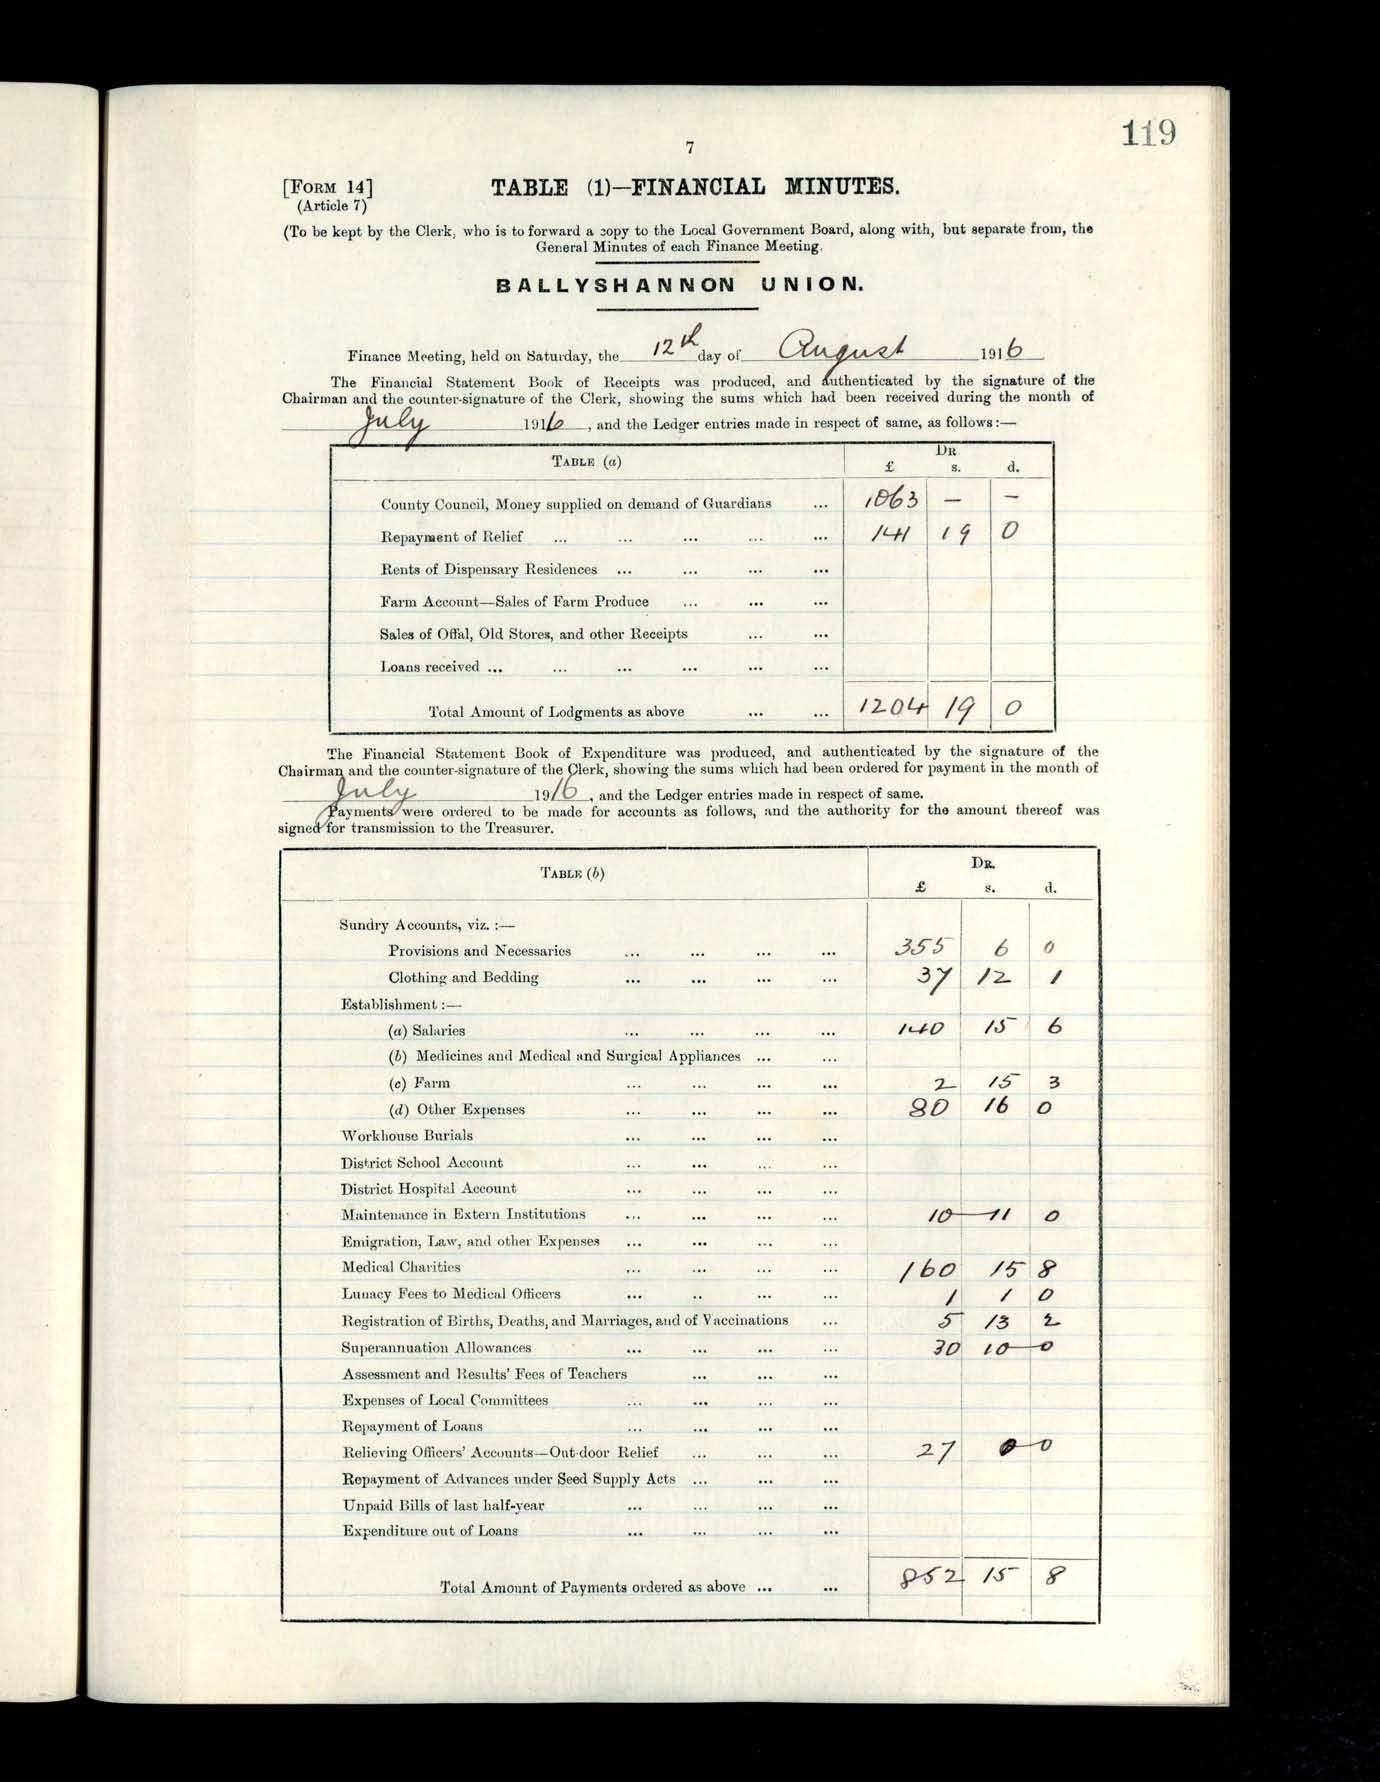 119
7
[FORM 14]
TABLE (1)—FINANCIAL MINUTES.
(Article 7)
(To be kept by the Clerk, who is to forward a copy to the Local Government Board, along with, but separate from, the
General Minutes of each Finance Meeting.
BALLYSHANNON UNION.
Finance Meeting, held on Saturday, the 12th day of August 1916
The Financial Statement Book of Receipts was produced, and authenticated by the signature of the
Chairman and the counter-signature of the Clerk, showing the sums which had been received during the month of
July 1916, and the Ledger entries made in respect of same, as follows:—
TABLE (a) DR
£ s. d.
County Council, Money supplied on demand of Guardians ... 1063 — —
Repayment of Relief ... ... ... ... ... 141 19 0
Rents of Dispensary Residences ... ... ... ...
Farm Account—Sales of Farm Produce ... ... ...
Sales of Offal, Old Stores, and other Receipts ... ...
Loans received ... ... ... ... ... ...
Total Amount of Lodgments as above ... ... 1204 19 0
The Financial Statement Book of Expenditure was produced, and authenticated by the signature of the
Chairman and the counter-signature of the Clerk, showing the sums which had been ordered for payment in the month of
July 1916, and the Ledger entries made in respect of same.
Payments were ordered to be made for accounts as follows, and the authority for the amount thereof was
signed for transmission to the Treasurer.
TABLE (b) DR.
£ s. d.
Sundry Accounts, viz. :—
Provisions and Necessaries ... ... ... ... 355 6 0
Clothing and Bedding ... ... ... ... 37 12 1
Establishment :—
(a) Salaries ... ... ... ... 140 15 6
(b) Medicines and Medical and Surgical Appliances ... ...
(c) Farm ... ... ... ... 2 15 3
(d) Other Expenses ... ... ... ... 80 16 0
Workhouse Burials ... ... ... ...
District School Account ... ... ... ...
District Hospital Account ... ... ... ...
Maintenance in Extern Institutions ... ... ... ... 10 — 11 0
Emigration, Law, and other Expenses ... ... ... ...
Medical Charities ... ... ... ... 160 15 8
Lunacy Fees to Medical Officers ... .. ... ... 1 1 0
Registration of Births, Deaths, and Marriages, and of Vaccinations ... 5 13 2
Superannuation Allowances ... ... ... ... 30 10 — 0
Assessment and Results' Fees of Teachers ... ... ...
Expenses of Local Committees ... ... ... ...
Repayment of Loans ... ... ... ...
Relieving Officers' Accounts—Out-door Relief ... ... ... 27 0 — 0
Repayment of Advances under Seed Supply Acts ... ... ...
Unpaid Bills of last half-year ... ... ... ...
Expenditure out of Loans ... ... ... ...
Total Amount of Payments ordered as above ... ... 852 15 8